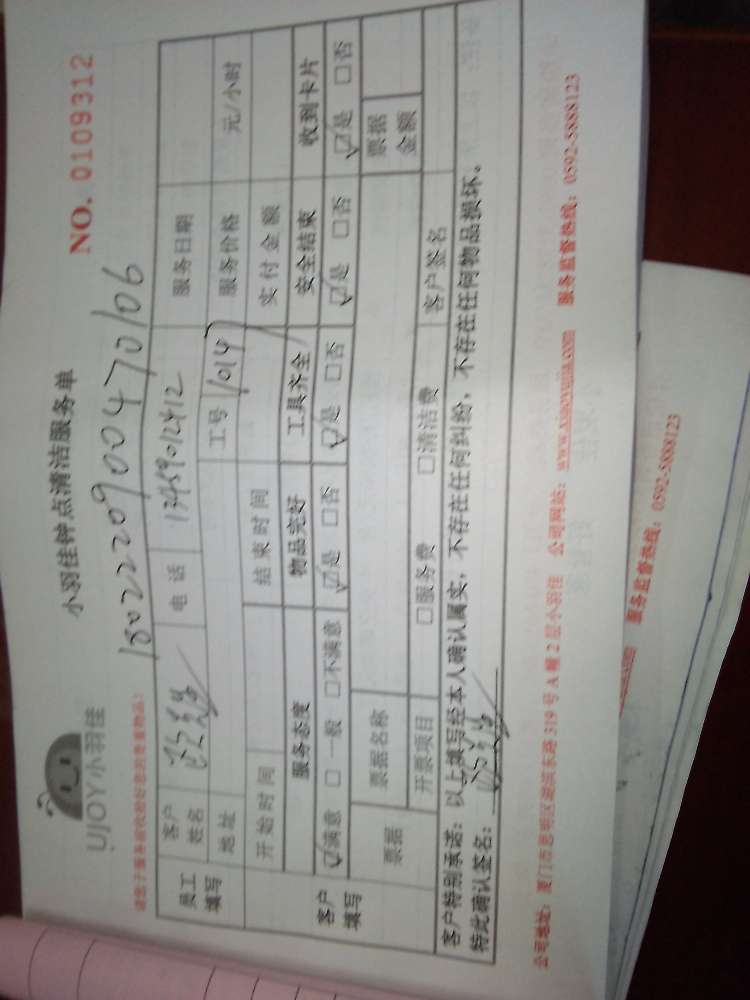 UJOY小羽佳
小羽佳钟点清洁服务单
NO. 0109312
1802220900470106
请您于服务前收拾好您的贵重物品:
员工填写 客户姓名 电话 13459012412 服务日期
地址 工号 1014 服务价格 元/小时
开始时间 结束时间 实付金额
客户填写 服务态度 物品完好 工具齐全 安全结束 收到卡片
☑满意 □一般 □不满意 ☑是 □否 ☑是 □否 ☑是 □否 ☑是 □否
票据 票据名称 票据金额
开票项目 □服务费 □清洁费 客户签名
客户特别承诺:以上填写经本人确认属实,不存在任何纠纷,不存在任何物品损坏。
特此确认签名:
公司地址:厦门市思明区湖滨东路319号A幢2层小羽佳 公司网站:www.xiaoyujia.com 服务监督热线:0592-5888123
服务监督热线:0592-5888123